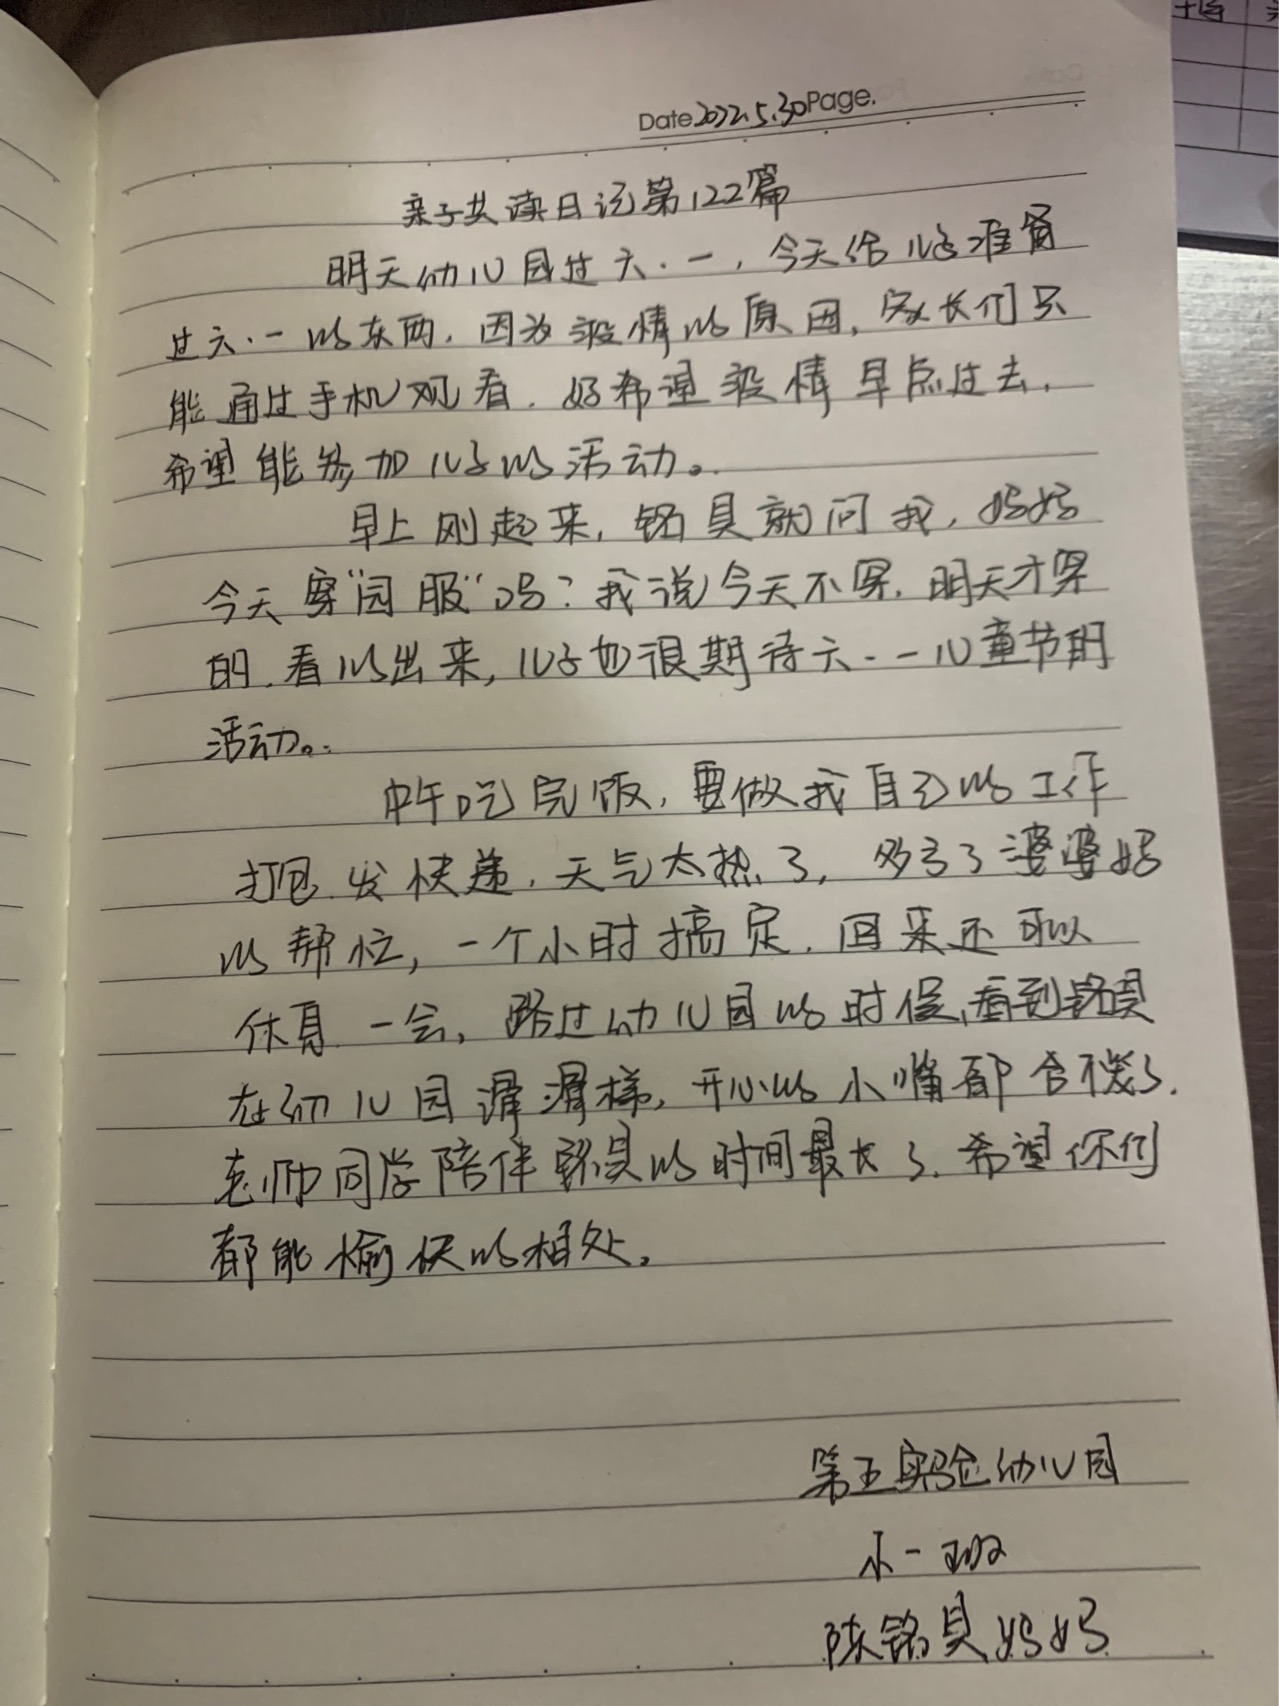 Date 2022.5.30 Page.
亲子共读日记第122篇
明天幼儿园过六·一，今天给儿子准备
过六·一的东西，因为疫情的原因，家长们只
能通过手机观看，好希望疫情早点过去，
希望能参加儿子的活动。
早上刚起来，铭具就问我，妈妈
今天穿“园服“吗？我说今天不穿，明天才穿
的，看的出来，儿子也很期待六·一儿童节的
活动。
中午吃完饭，要做我自己的工作
打包，发快递，天气太热了，多亏了婆婆妈
的帮忙，一个小时搞定，回来还可以
休息一会，路过幼儿园的时候，看到铭具
在幼儿园滑滑梯，开心的小嘴都合不拢了，
老师同学陪伴铭具的时间最长了，希望你们
都能愉快的相处。
第五实验幼儿园
小一班
陈铭具妈妈